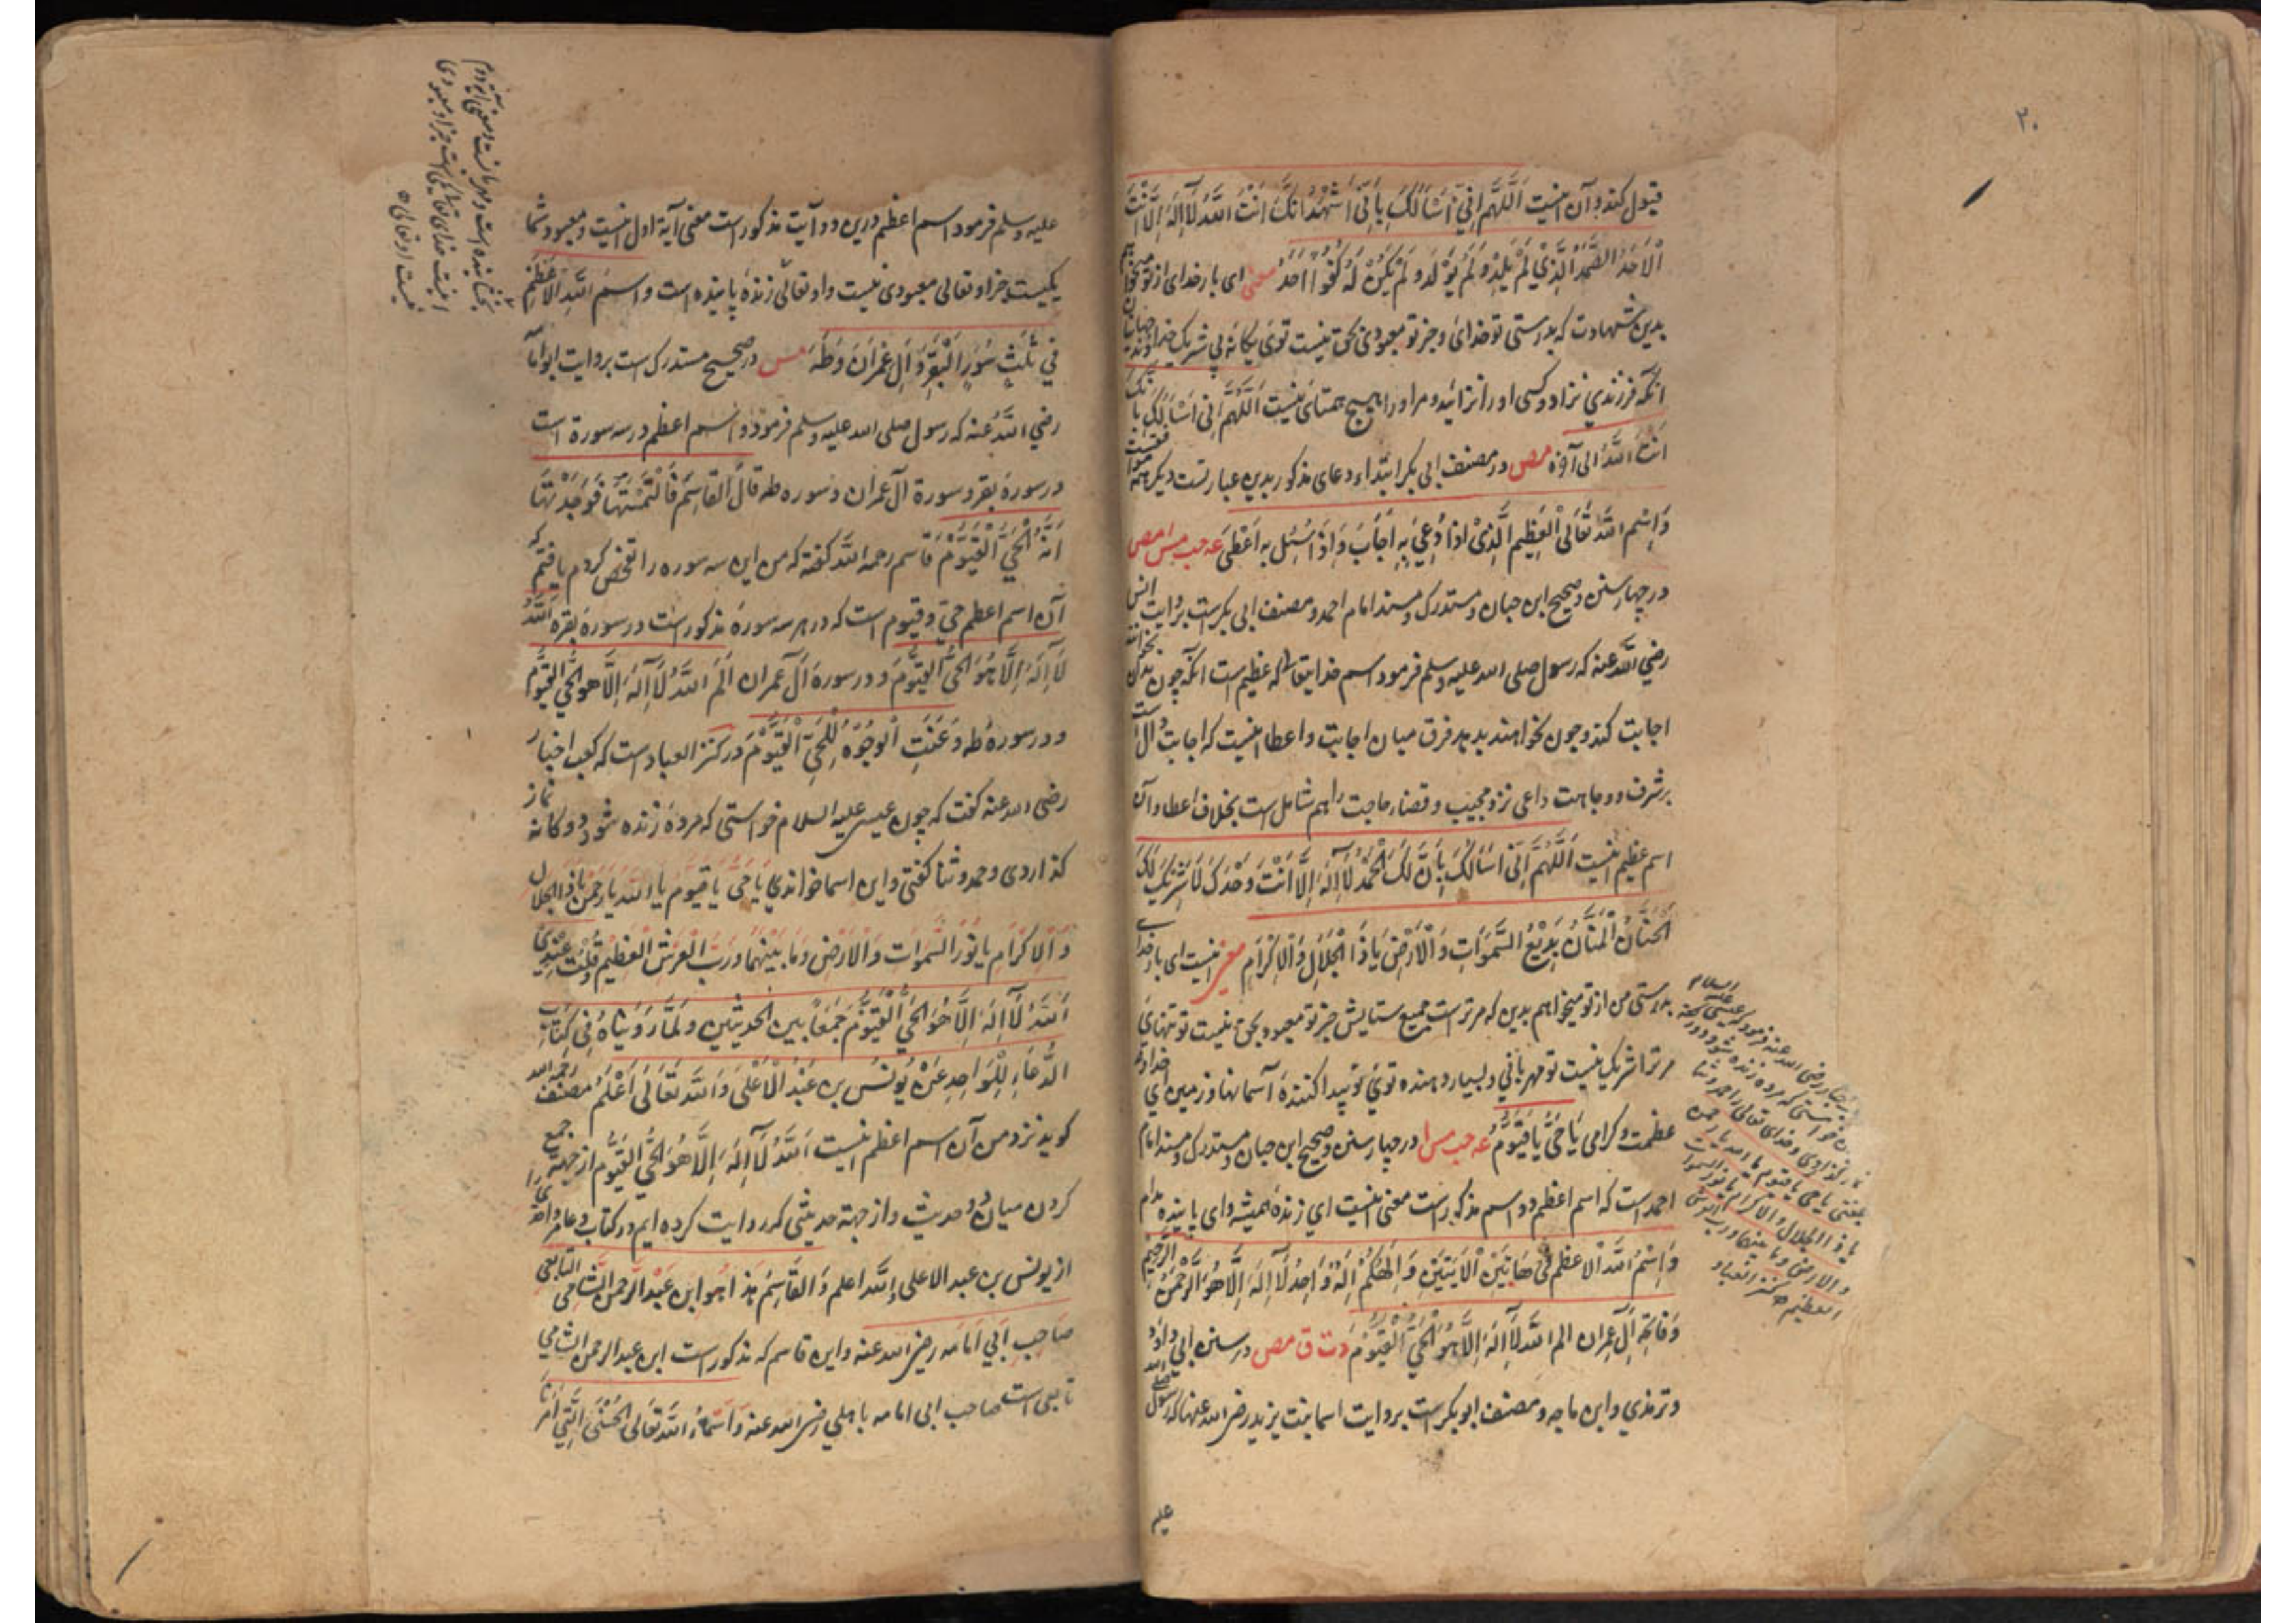 ۲۰
قبول کند و آن اینست اَللّٰهُمَّ اِنِّیْ اَسْاَلُکَ بِاَنِّیْ اَشْهَدُ اَنَّکَ اَنْتَ اللّٰهُ لَآ اِلٰهَ اِلَّا اَنْتَ
الْاَحَدُ الصَّمَدُ الَّذِیْ لَمْ یَلِدْ وَ لَمْ یُوْلَدْ وَ لَمْ یَکُنْ لَهٗ کُفُوًا اَحَدٌ معنی ای بار خدای از تو میخواهم
بدین شهادت که بدرستی تو خدائ و جز تو معبودی بحق نیست توئ یگانهٔ بی شریک خداوند
آنکه فرزندی نزاد و کسی او را نزائید و مر او را هیچ همتای نیست اَللّٰهُمَّ اِنِّی اَسْاَلُکَ بِاَنَّکَ
اَنْتَ اللّٰهُ الی آخره مص در مصنف ابی بکر ابتداء دعای مذکور بدین عبارتست دیگر همه
وَ اِسْمُ اللّٰهِ تَعَالَی الْعَظِیْمِ الَّذِیْ اِذَا دُعِیَ بِهٖ اَجَابَ وَ اِذَا سُئِلَ بِهٖ اَعْطٰی عه حب مس امص
در چهار سنن و صحیح ابن حبان و مستدرک و مسند امام احمد و مصنف ابی بکرست بروایت انس
رضی اللّٰه عنه که رسول صلی الله علیه وسلم فرمود اسم خدایتعالی که عظیم است آنکه چون بدان بخوانند
اجابت کند و چون بخواهند بدهد فرق میان اجابت و اعطا اینست که اجابت دال است
بر شرف و وجاهت داعی نزد مجیب و قضاء حاجت را هم شامل ست بخلاف اعطا و آن
اسم عظیم اینست اَللّٰهُمَّ اِنِّیْ اَسْاَلُکَ بِاَنَّ لَکَ الْحَمْدُ لَآ اِلٰهَ اِلَّا اَنْتَ وَحْدَکَ لَا شَرِیْکَ لَکَ
الْحَنَّانُ الْمَنَّانُ بَدِیْعُ السَّمٰوَاتِ وَ الْاَرْضِ یَا ذَا الْجَلَالِ وَ الْاِکْرَامِ معنی اینست ای بار خدای
بدرستی من از تو میخواهم بدین که مر تراست جمیع ستایش جز تو معبود بحق نیست تو تنهای
مر ترا شریک نیست تو مهربانی و بسیار دهنده توئ تو پیدا کنندهٔ آسمانها و زمین ای خداوند
عظمت و کرامی یَا حَیُّ یَا قَیُّوْمُ عه حب مس ا در چهار سنن و صحیح ابن حبان و مستدرک و مسند امام
احمد است که اسم اعظم دو اسم مذکورست معنی اینست ای زندهٔ همیشه و ای پاینده مدام
وَ اِسْمُ اللّٰهِ الْاَعْظَمُ فِیْ هَاتَیْنِ الْاٰیَتَیْنِ وَ اِلٰهُکُمْ اِلٰهٌ وَّاحِدٌ لَآ اِلٰهَ اِلَّا هُوَ الرَّحْمٰنُ الرَّحِیْمُ
وَ فَاتِحَةِ آلِ عِمْرَان الم اللّٰهُ لَآ اِلٰهَ اِلَّا هُوَ الْحَیُّ الْقَیُّوْمُ د ت ق مص در سنن ابی داؤد
و ترمذی و ابن ماجه و مصنف ابو بکرست بروایت اسما بنت یزید رضی الله عنها که رسول صلی الله
رضی الله عنه فرمود که عیسی علیه السلام
خواستی که مرده زنده شود دو رکعت
نماز گذاردی و خدای تعالی را حمد و ثنا
گفتی یا حی یا قیوم یا الله یا رحمن
یا ذا الجلال والاکرام یا نور السموات
والارض وما بینهما ورب العرش
العظیم کنز العباد
علیه
علیه وسلم فرمود اسم اعظم درین دو آیت مذکورست معنی آیة اول اینست و معبود شما
یکیست و جز او تعالی معبودی نیست و او تعالی زندهٔ پاینده است و اسمُ اللّٰهِ الْاَعْظَمُ
فِیْ ثَلٰثِ سُوَرٍ الْبَقَرَةِ وَ آلِ عِمْرَانَ وَ طٰهٰ مس در صحیح مستدرک ست بروایت ابو اما
رضی اللّٰهُ عنه که رسول صلی الله علیه وسلم فرمود و اسم اعظم در سه سورة است
در سورة بقره و سورة آل عمران و سوره طه قَالَ الْقَاسِمُ فَالْتَمَسْتُهَا فَوَجَدْتُهَا
اَنَّهُ الْحَیُّ الْقَیُّوْمُ قاسم رحمه اللّٰه گفته که من این سه سوره را تفحص کردم یافتم که
آن اسم اعظم حی و قیوم است که در هر سه سورهٔ مذکورست در سورهٔ بقره اَللّٰهُ
لَآ اِلٰهَ اِلَّا هُوَ الْحَیُّ الْقَیُّوْمُ و در سورة آل عمران الم اَللّٰهُ لَآ اِلٰهَ اِلَّا هُوَ الْحَیُّ الْقَیُّوْمُ
و در سورهٔ طه وَ عَنَتِ الْوُجُوْهُ لِلْحَیِّ الْقَیُّوْمِ در کنز العباد است که کعب احبار
رضی الله عنه گفت که چون عیسی علیه السلام خواستی که مردهٔ زنده شود دوگانه نماز
گذاردی و حمد و ثنا گفتی و این اسما خواندی یَا حَیُّ یَا قَیُّوْمُ یا اَللّٰهُ یَا رَحْمٰنُ یَا ذَا الجلال
وَ الْاِکْرَامِ یَا نُوْرَ السَّمٰوَاتِ وَ الْاَرْضِ وَ مَا بَیْنَهُمَا وَ رَبَّ الْعَرْشِ الْعَظِیْمِ قُلْتُ عِنْدِیْ
اَللّٰهُ لَآ اِلٰهَ اِلَّا هُوَ الْحَیُّ الْقَیُّوْمُ جَمْعًا بَیْنَ الْحَدِیْثَیْنِ وَ لِمَا رَوَیْنَاهُ فِیْ کِتَابِ
الدُّعَاءِ لِلْوَاحِدِیِّ عَنْ یُوْنُسَ بْنِ عَبْدِ الْاَعْلٰی وَ اللّٰهُ تَعَالٰی اَعْلَمُ مصنف رحمه الله
گوید نزد من آن اسم اعظم اینست اَللّٰهُ لَآ اِلٰهَ اِلَّا هُوَ الْحَیُّ الْقَیُّوْمُ از جهة جمع
کردن میان دو حدیث و از جهة حدیثی که روایت کرده ایم در کتاب دعا مر واحدی را
از یونس بن عبد الاعلی و اللّٰه اعلم وَ الْقَاسِمُ هٰذَا هُوَ ابن عَبْدِ الرَّحْمٰنِ الشامی التابعی
صَاحِبِ اَبِی اُمَامَه رضی الله عنه و این قاسم که مذکورست ابن عبد الرحمن الشامی
تابعی است صاحب ابی امامه باهلی رضی الله عنه وَ اَسْمَاءُ اللّٰهِ تَعَالَی الْحُسْنَی الَّتِیْ اُمِرْنَا
بخشاینده است و مهربانست و معنی آیة دوم
اینست خدای تعالی نیست جز او معبودی
نیست او تعالی